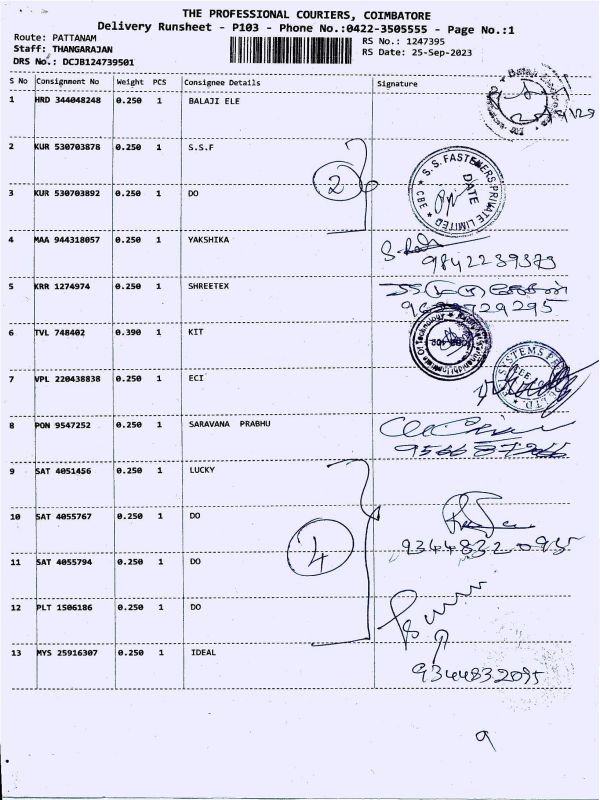 THE PROFESSIONAL COURIERS, COIMBATORE
Delivery Runsheet - P103 - Phone No.:0422-3505555 - Page No.:1
Route: PATTANAM
RS No.: 1247395
Staff: THANGARAJAN
RS Date: 25-Sep-2023
DRS No.: DCJB124739501
S No Consignment No Weight PCS Consignee Details Signature
1 HRD 344048248 0.250 1 BALAJI ELE
2 KUR 530703878 0.250 1 S.S.F
2
S.S. FASTENERS PRIVATE LIMITED * CBE *
DATE
3 KUR 530703892 0.250 1 DO
4 MAA 944318057 0.250 1 YAKSHIKA
9842239373
5 KRR 1274974 0.250 1 SHREETEX
6 TVL 748402 0.390 1 KIT
7 VPL 220438838 0.250 1 ECI
8 PON 9547252 0.250 1 SARAVANA PRABHU
9 SAT 4051456 0.250 1 LUCKY
10 SAT 4055767 0.250 1 DO
4
9344832095
11 SAT 4055794 0.250 1 DO
12 PLT 1506186 0.250 1 DO
13 MYS 25916307 0.250 1 IDEAL
9344832095
9